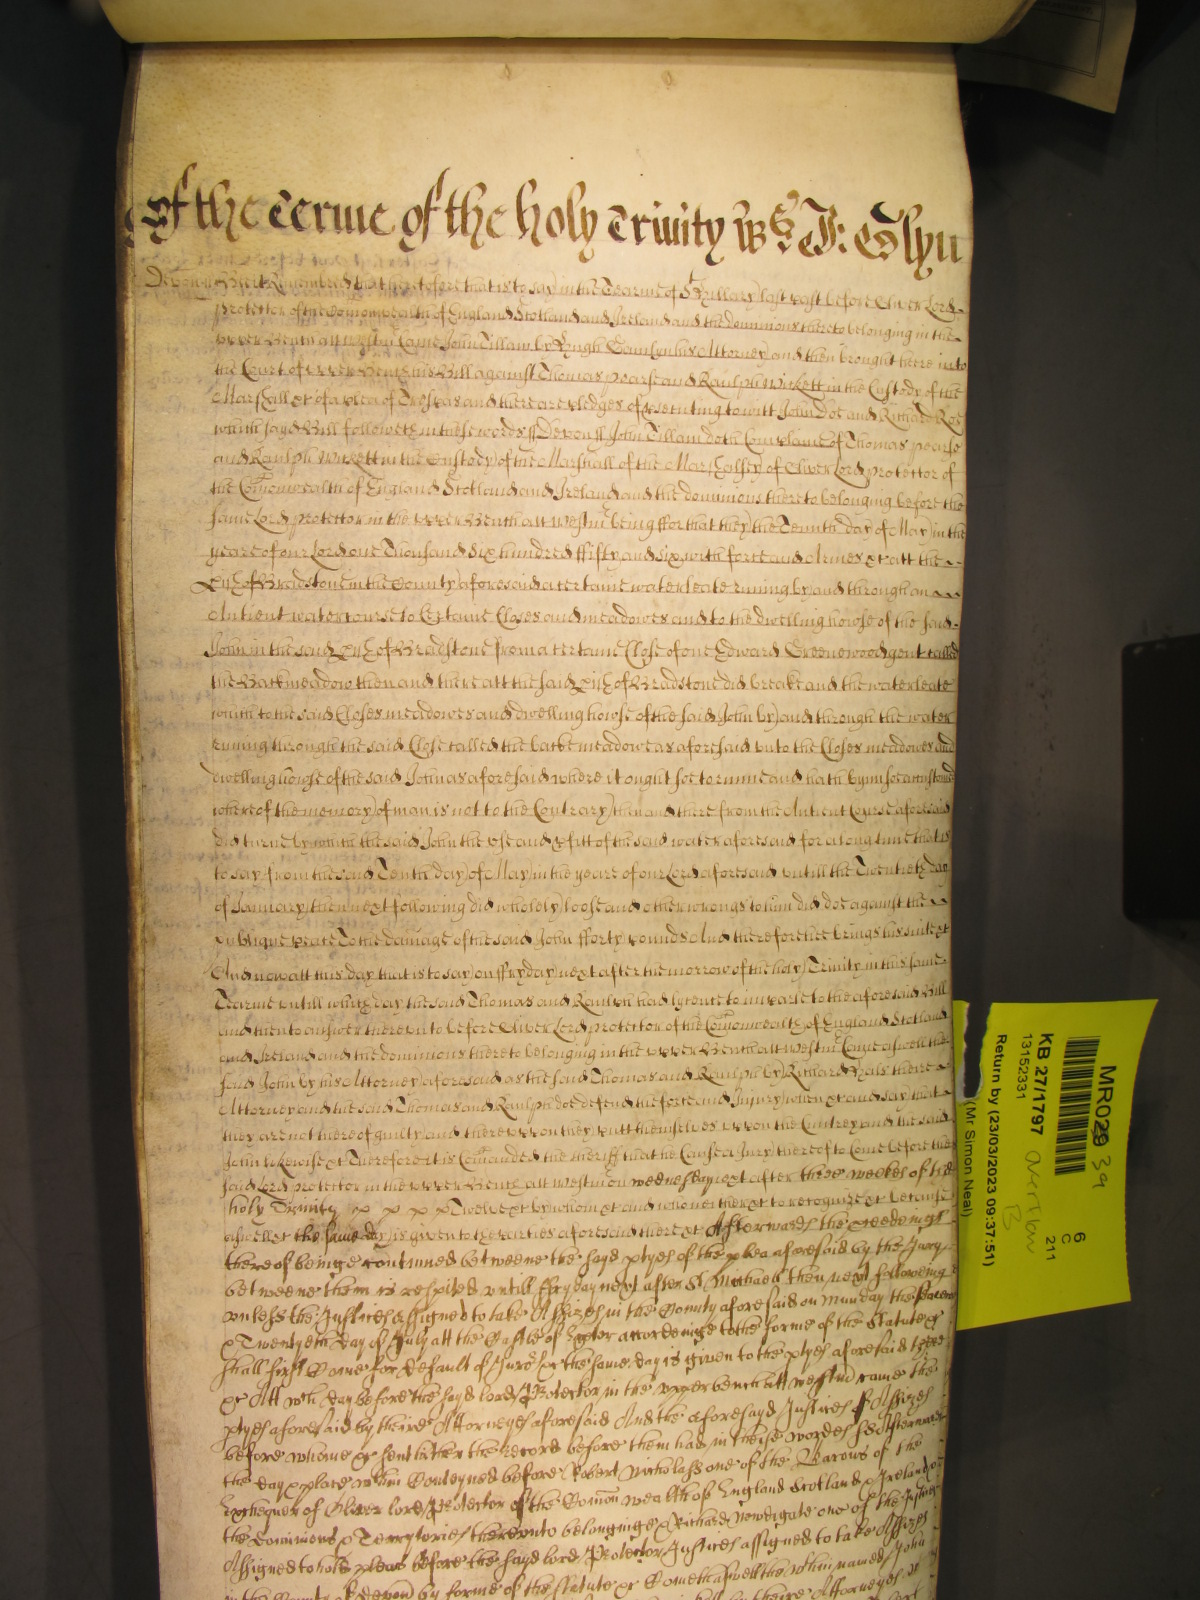 Of the Terme of the holy Trinity W S J: Glyn
Devon ss Bee it Remembred that heretofore that is to say in the Tearme of St Hillary last past before Oliver Lord
Protector of the Comonwealth of England Scotland and Ireland and the dominions thereto belonging in the
upper Bench att Westm Came John Tillam by Attorney and then brought there into
the Court of upper Bench his Bill against Thomas pearse and Raulph Wickett in the Custody of the
Marshall &c of a plea of Trespas and there are pledges of prsecuting to witt John Doe and Richard Roe
which sayd Bill followeth in these words ss Devon ss John Tillam doth Complaine of Thomas pearse
and Raulph Wickett in the Custody of the Marshall of the Marshalsey of Oliver Lord protector of
the Comonwealth of England Scotland and Ireland and the dominions thereto belonging before the
same Lord protector in the upper Bench att Westm being ffor that they the Tennth day of May in the
yeare of our Lord one Thousand Six hundred ffifty and six with force and Armes &c att the
of Bradstone in the County aforesaid a certaine water leate runing by and through an
Antient watercourse to Certaine Closes and meadowes and to the dwelling howse of the said
John in the said of Bradstone from a certaine Close of one Edward Greenewood gent called
the Backmeadow then and there att the said of Bradstone did breake and the water leate
which to the said Closes meadowes and dwelling howse of the said John by and through the water
runing through the said Close called the backe meadow as aforesaid unto the Closes meadowes and
dwelling howse of the said John as aforesaid where it ought soe to runne and hath byn soe accustomed
whereof the memory of man is not to the Contrary then and there from the Antient Course aforesaid
did turne by which the said John the use and pfitt of the said water aforesaid for a long time that is
to say from the said Tenth day of May in the yeare of our Lord aforesaid untill the Twentieth day
of January then next following did wholely loose and other wrongs to him did doe against the
publique peace To the damage of the said John fforty pounds And therefore hee brings his suite &c
And now att this day that is to say on ffryday next after the morrow of the holy Trinity in this same
Tearme untill which day the said Thomas and Raulph had lycence to imparle to the aforesaid Bill
and then to answer thereunto before Oliver Lord protector of the Comonwealth of England Scotland
and Ireland and the dominions thereto belonging in the upper Bench att Westm Came aswell the
said John by his Attorney aforesaid as the said Thomas and Raulph by Richard Hals there
Attorney and the said Thomas and Raulph doe defend the force and Injury when &c and say that
they are not thereof guilty and thereuppon they putt themselves uppon the Cuntrey and the said
John likewise &c Therefore it is Comanded the sheriff that he Cause a Jury thereof to Come before the
said Lord protector in the upper Bench att Westm on wednesday next after three weekes of the
holy Trinity Twelve &c by whom &c and who neither &c to recognize &c because
aswell &c the same day is given to the parties aforesaid there &c Afterwards the
thereof beinge continued betweene the sayd ptyes of the plea aforesaid by the Jury
betweene them is respited untill ffryday next after St Michaell then next followeing
unless the Justices assigned to take Assizes in the County aforesaid on Munday the
Twentyeth day of July att the Castle of accordeinge to the forme of the Statute &c
shall first Come for default of Jurors &c the same day is given to the ptyes aforesaid there
&c Att wch day before the sayd lord Protector in the upper bench att Westm came the
ptyes aforesaid by theire Attorneyes aforesaid And the aforesayd Justices of Assizes
before whome &c sent hither the Record before them had in theise wordes ss Afterwards
the day & place within Conteyned before Robert Nicholas one of the Barons of the
Exchequer of Oliver lord Protector of the Comon wealth of England Scotland & Ireland &
the Dominions & Territories thereunto belonginge & Richard Newdigate one of the Justices
Assigned to hold pleas before the sayd lord Protector Justices assigned to take Assizes
in the County of Devon by forme of the Statute &c Cometh aswell the within named John
theire Attorneyes
MR029 3a
KB 27/1797
13152331
Return by (23/03/2023 09:37:51)
(Mr Simon Neal)
6
C
211
Overflow
B